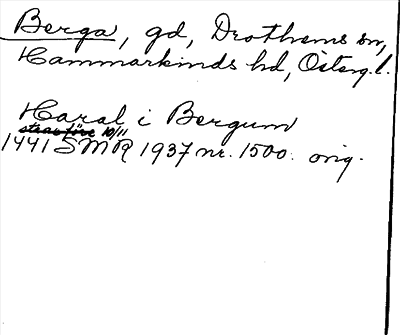 Berga, gd, Drothems sn,
Hammarkinds hd, Österg. l.
Haral i Bergum
strax före 10/11
1441 SMR 1937 nr. 1500. orig.